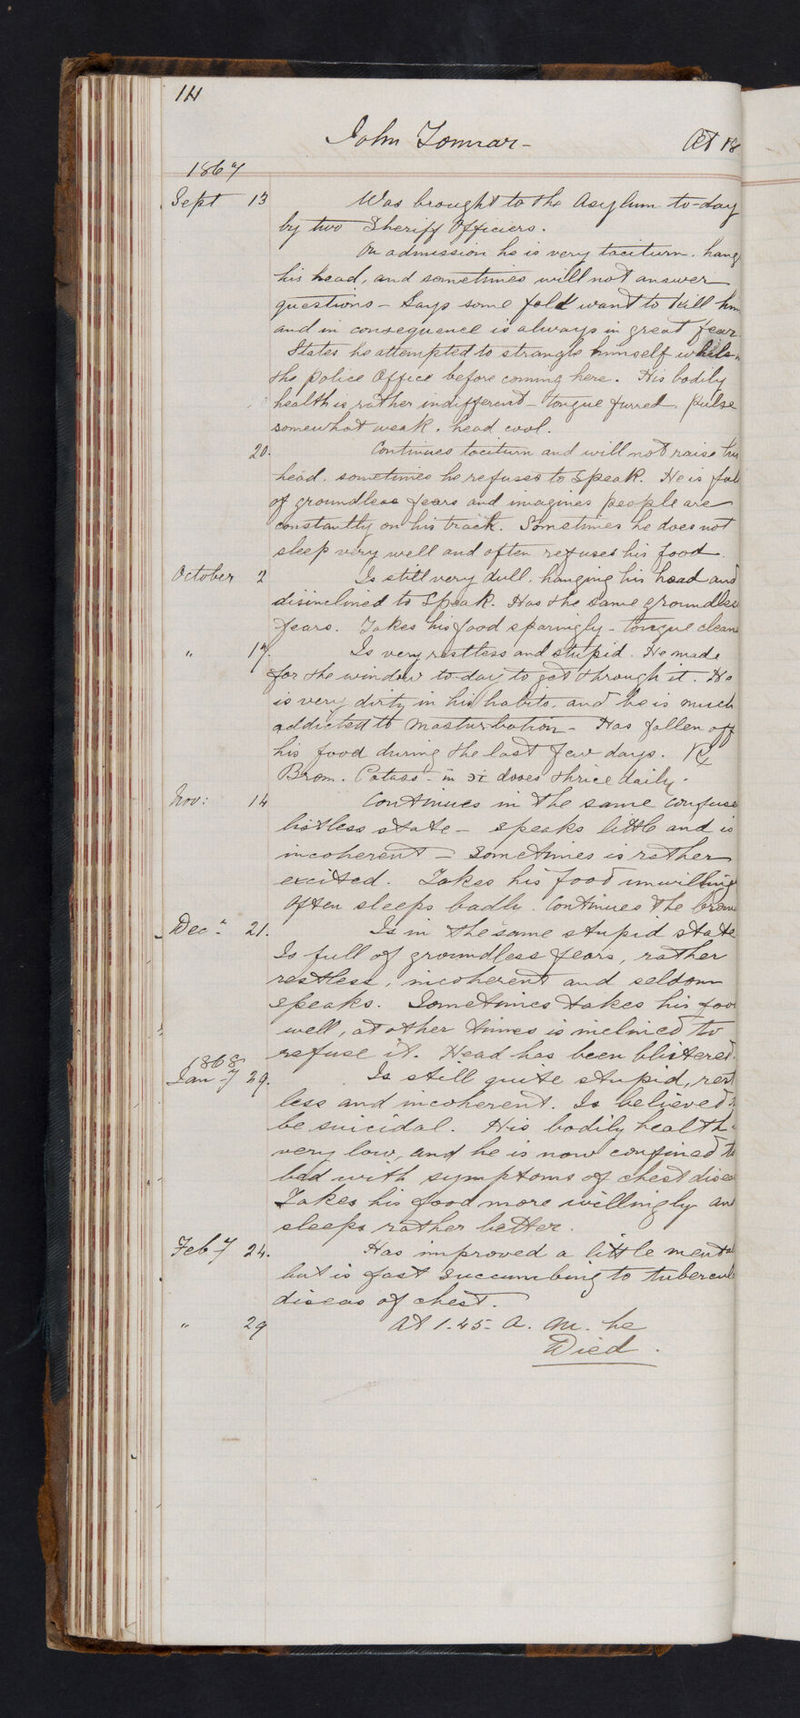 114
John Tonnar - Æt 18
1867
Sept 13 Was brought to the Asylum to-day
by two Sheriff Officers.
On admission he is very taciturn. hangs
his head, and sometimes will not answer
questions - Says some folk want to kill him
and in consequence is always in great fear.
States he attempted to strangle himself whils
the Police Office before coming here. His bodily
health is rather indifferent - tongue furred, pulse
somewhat weak. head cool.
20. Continues taciturn and will not raise his
head. sometimes he refuses to speak. He is full
of groundless fears and imagines people are
constantly on his track. Sometimes he does not
sleep very well and often refuses his food.
October 2 Is still very dull. hanging his head and
disinclined to speak. Has the same groundless
fears. Takes his food sparingly - tongue clean
" 17. Is very restless and stupid. He made
for the window to-day to get through it. He
is very dirty in his habits, and he is much
addicted to masturbation - Has fallen off
his food during the last few days. ℞
Brom. Potass - in doses thrice daily.
Nov: 14 Continues in the same confuse
listless state - speaks little and is
incoherent - Sometimes is rather
excited. Takes his food unwilling
Often sleeps badly. Continues the brom
Decr. 21. Is in the same stupid state
Is full of groundless fears, rather
restless, incoherent and seldom
speaks. Sometimes takes his foo
well, at other times is inclined to
refuse it. Head has been blistered.
1868
Jany 29. Is still quite stupid, rest
less and incoherent. Is believed to
be suicidal. His bodily health is
very low, and he is now confined to
bed with symptoms of chest disea
Takes his food more willingly and
sleeps rather better.
Feby 24. Has improved a little menta
but is fast succumbing to tubercul
diseas of chest.
" 29 At 1.45 - A. M. he
Died.